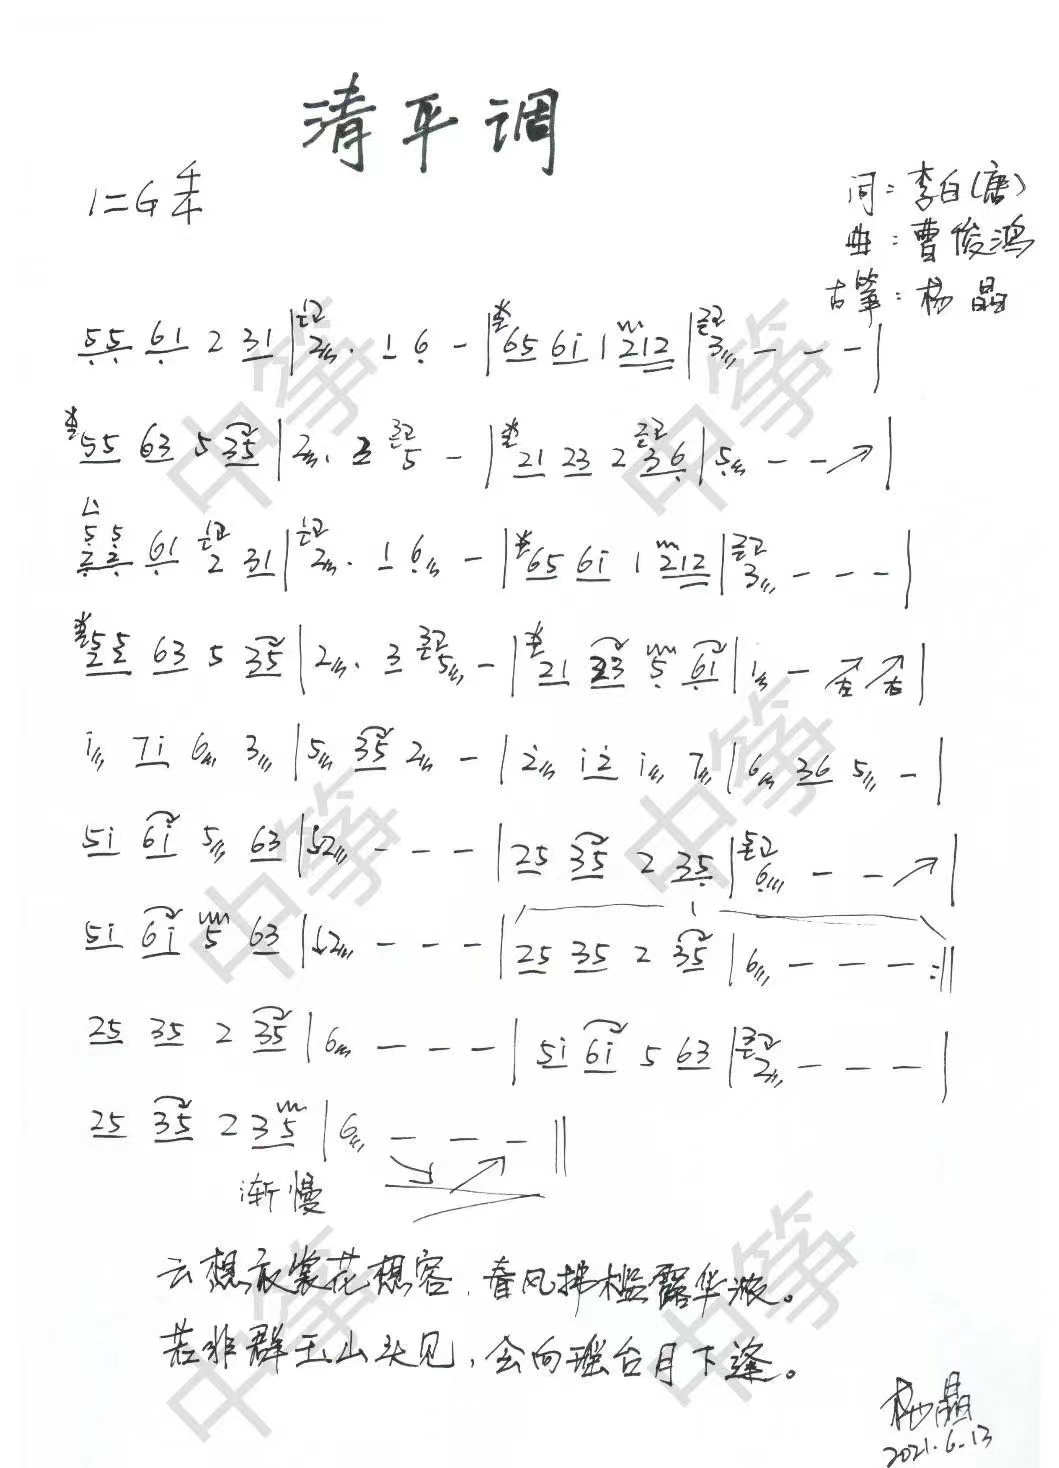 清平调
1=G 4/4
词：李白(唐)
曲：曹俊鸿
古筝：杨晶
55 61 2 31 | 2· 1 6 - | 65 6i 1 212 | 3 - - - |
55 63 5 35 | 2· 3 5 - | 21 23 2 36 | 5 - - ↗ |
55 61 2 31 | 2· 1 6 - | 65 6i 1 212 | 3 - - - |
55 63 5 35 | 2· 3 5 - | 21 23 5 61 | 1 - ↗左 ↗右 |
i 7i 6 3 | 5 35 2 - | 2 i2 i 7 | 6 36 5 - |
5i 6i 5 63 | 52 - - - | 25 35 2 35 | 6 - - ↗ |
1
5i 6i 5 63 | ↓2 - - - | 25 35 2 35 | 6 - - - :‖
25 35 2 35 | 6 - - - | 5i 6i 5 63 | 2 - - - |
25 35 2 35 | 6 - - - ‖
渐慢
云想衣裳花想容，春风拂槛露华浓。
若非群玉山头见，会向瑶台月下逢。
杨晶
2021.6.13
中筝
中筝
中筝
中筝
中筝
中筝